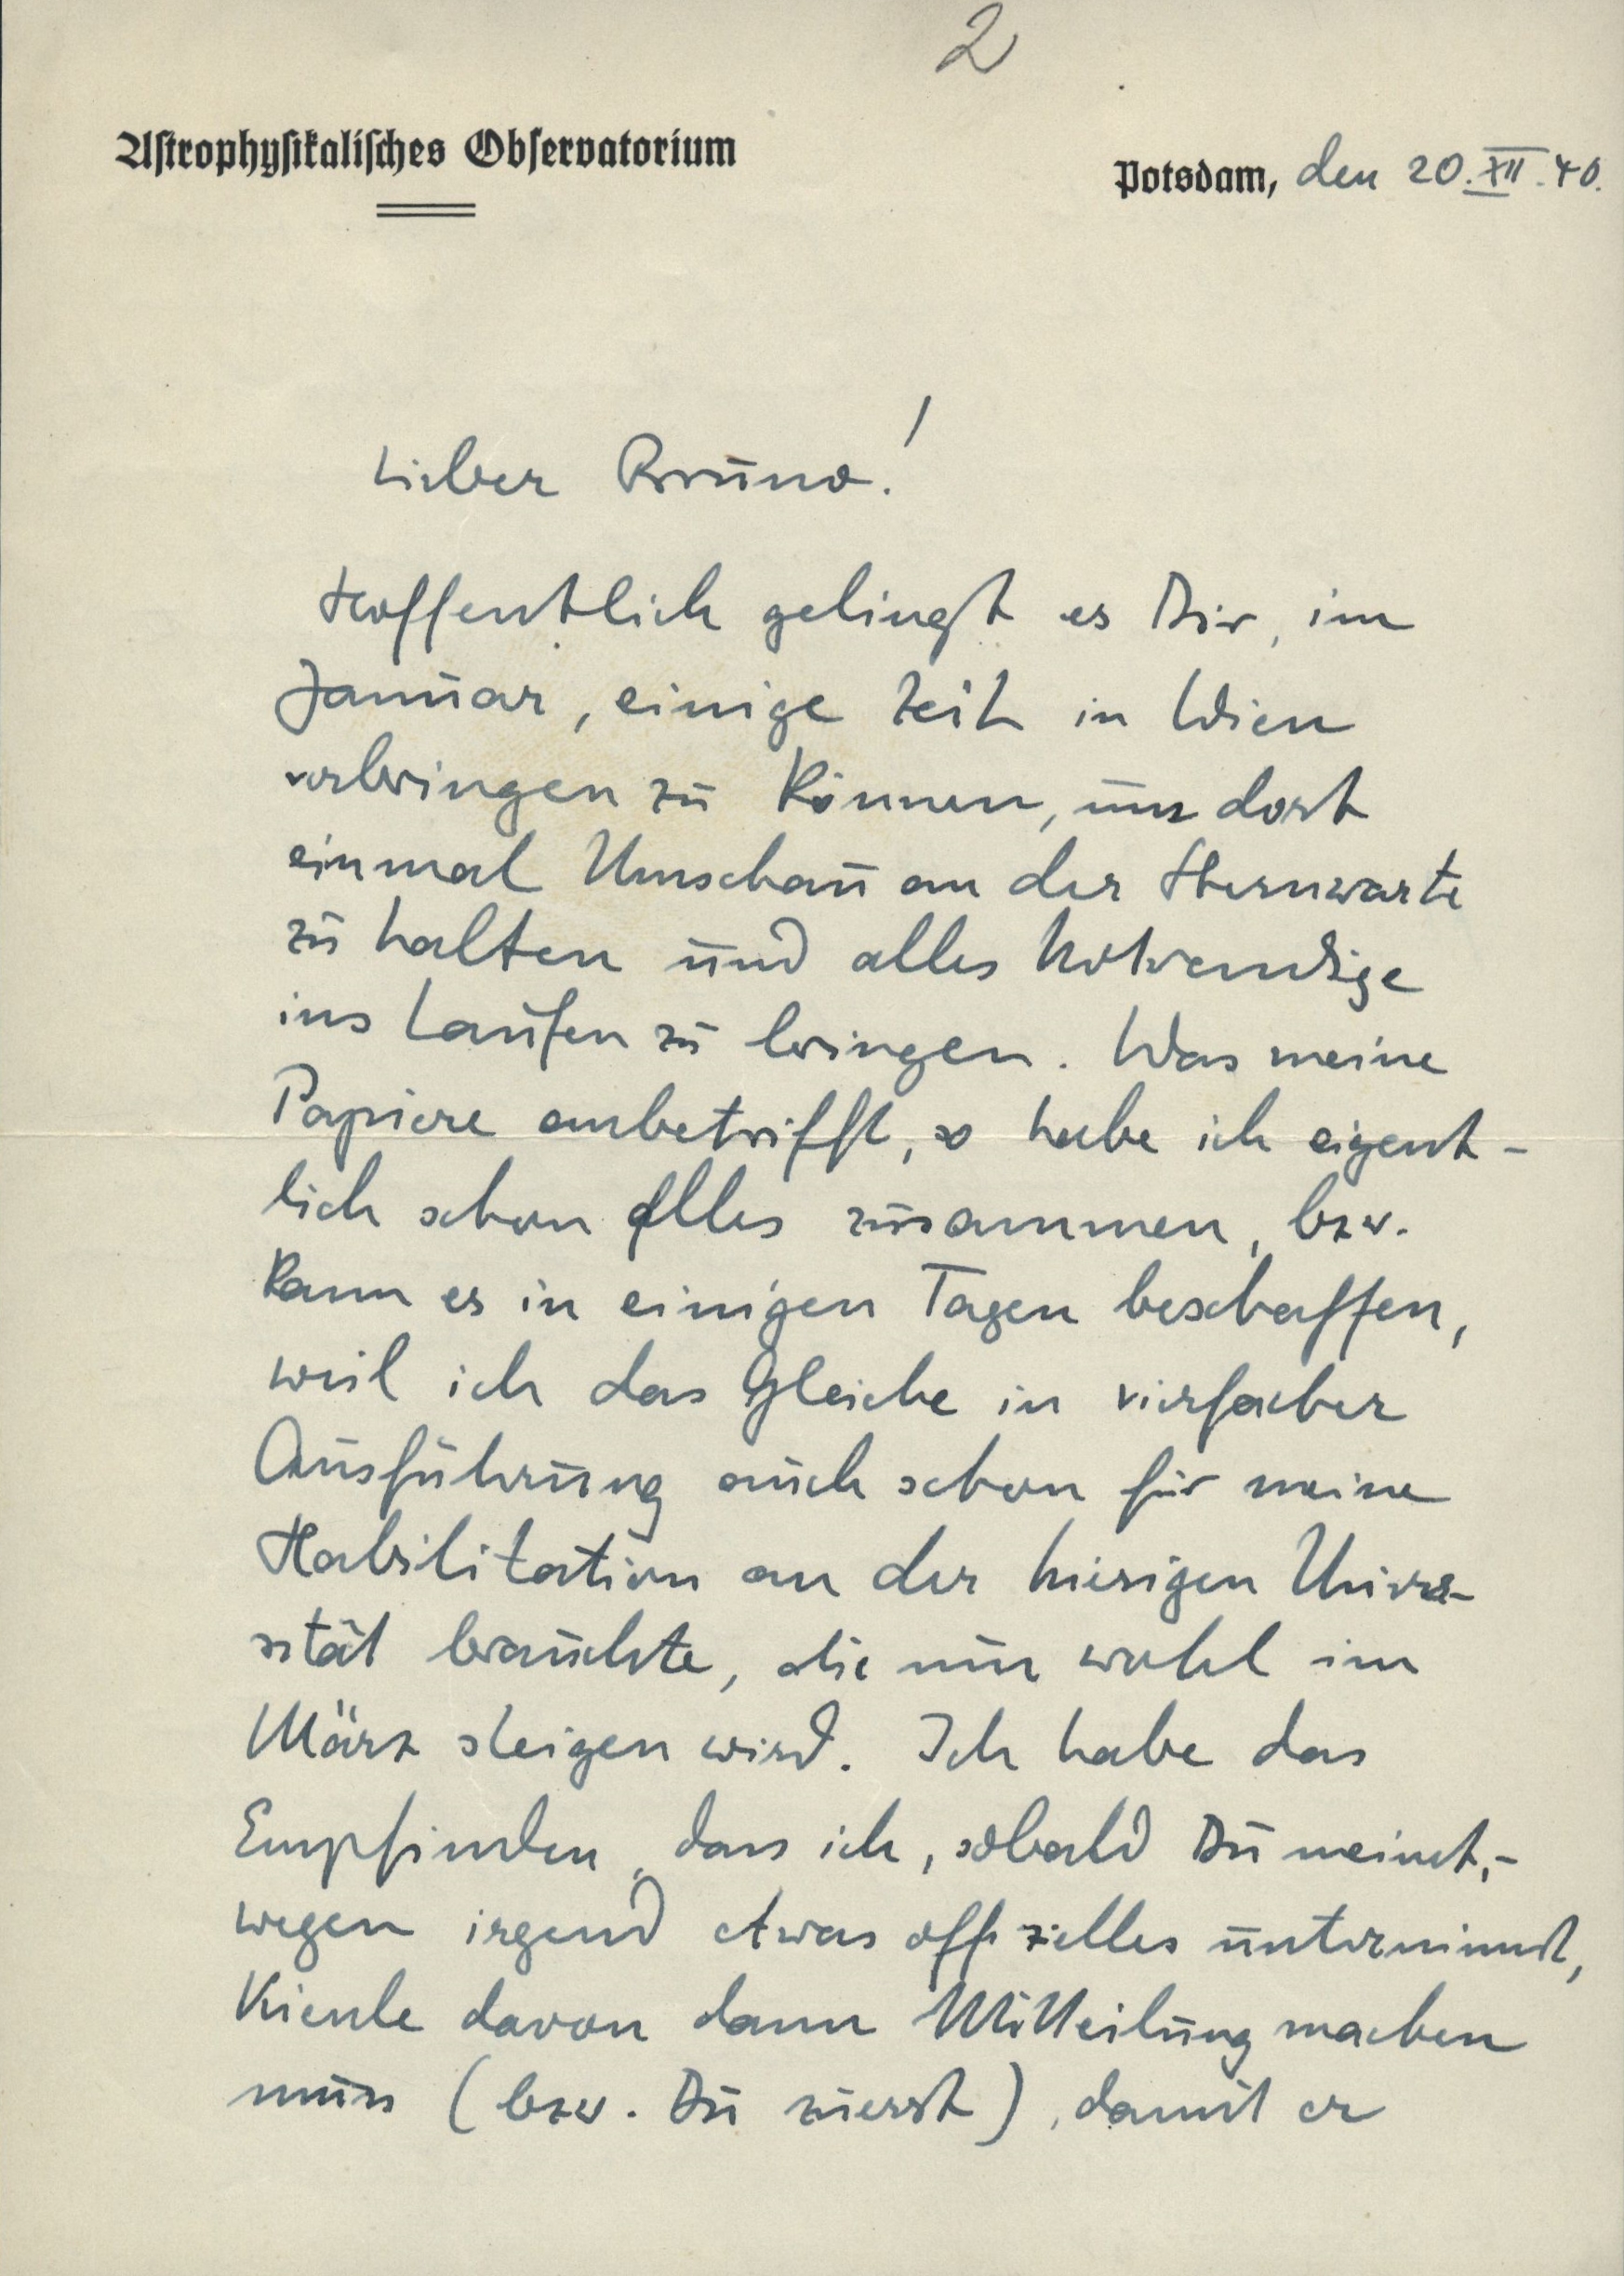 2
Astrophysikalisches Observatorium
Potsdam, den 20.XII.40.
Lieber Bruno!
Hoffentlich gelingt es Dir, im
Januar, einige Zeit in Wien
verbringen zu können, um dort
einmal Umschau an der Sternwarte
zu halten und alles Notwendige
ins Laufen zu bringen. Was meine
Papiere anbetrifft, so habe ich eigent-
lich schon alles zusammen, bzw.
kann es in einigen Tagen beschaffen,
weil ich das Gleiche in vierfacher
Ausführung auch schon für meine
Habilitation an der hiesigen Univer-
sität brauchte, die nun wohl im
März steigen wird. Ich habe das
Empfinden, dass ich, sobald Du meinet,-
wegen irgend etwas offizielles unternimmst,
Kienle davon dann Mitteilung machen
muss (bzw. Du zuerst), damit er